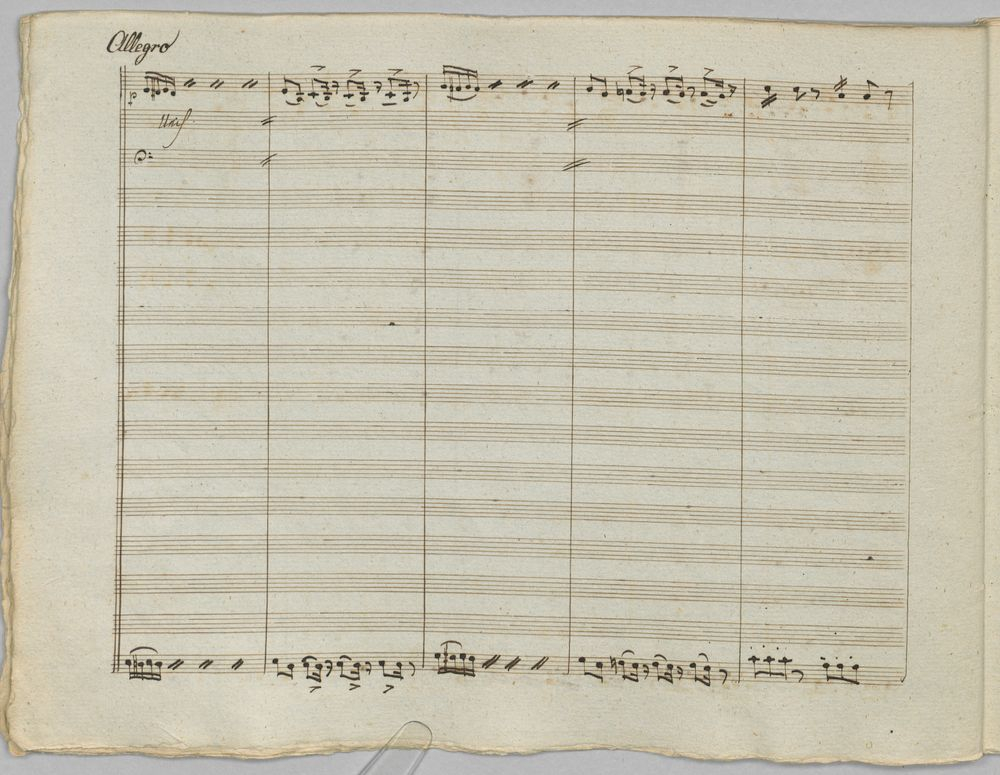 Allegro
p
Unis.